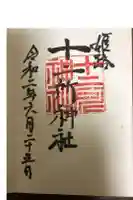 姫路
十二所神社
令和二年六月二十五日